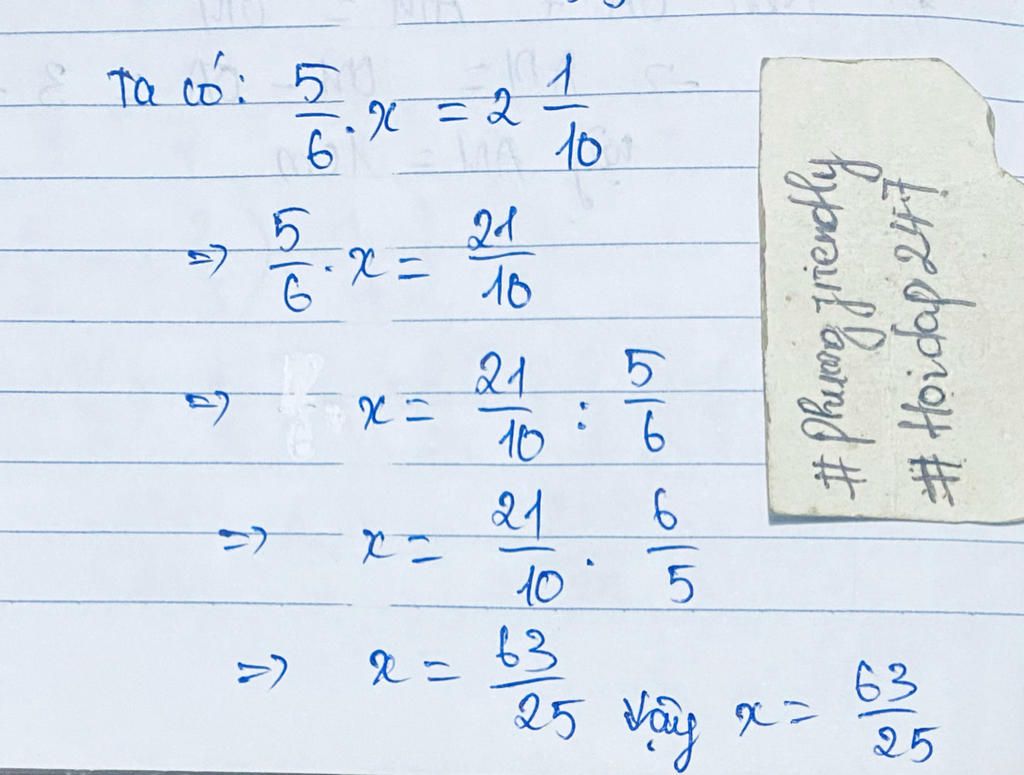 Ta có: 5/6 . x = 2 1/10
=> 5/6 . x = 21/10
=> x = 21/10 : 5/6
=> x = 21/10 . 6/5
=> x = 63/25 Vậy x = 63/25
# Phuong friendly
# Hoidap247